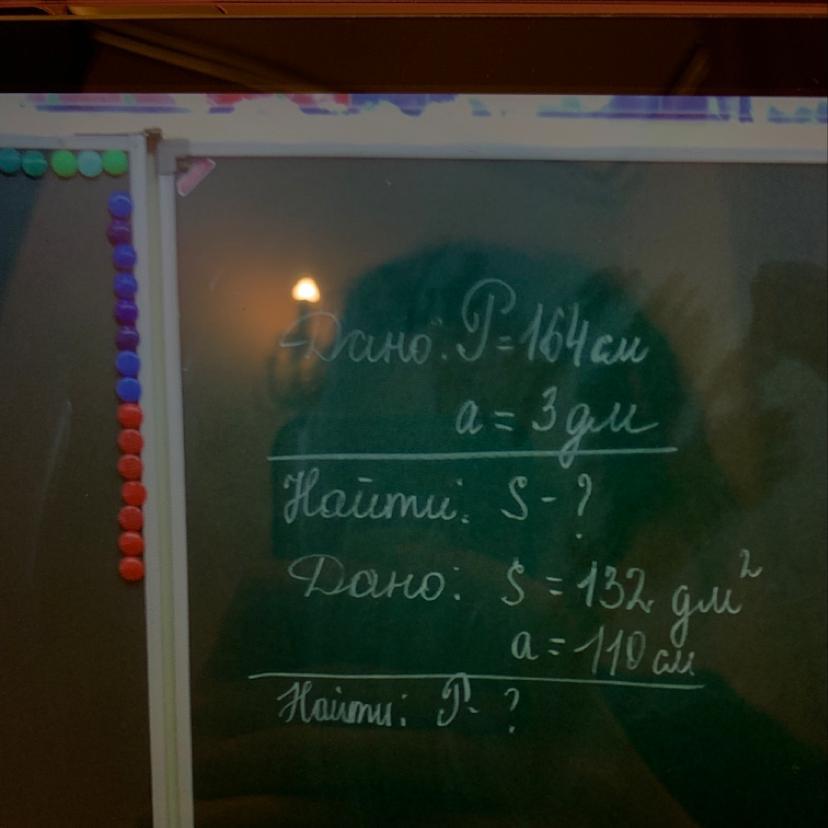 Дано: P = 164 см
a = 3 дм
Найти: S - ?
Дано: S = 132 дм²
a = 110 см
Найти: P - ?